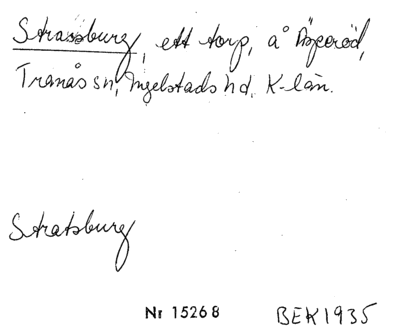 Strassburg, ett torp, å Äsperöd,
Tranås sn, Ingelstads hd. K-län.
Stratsburg
Nr 15268
BEK1935